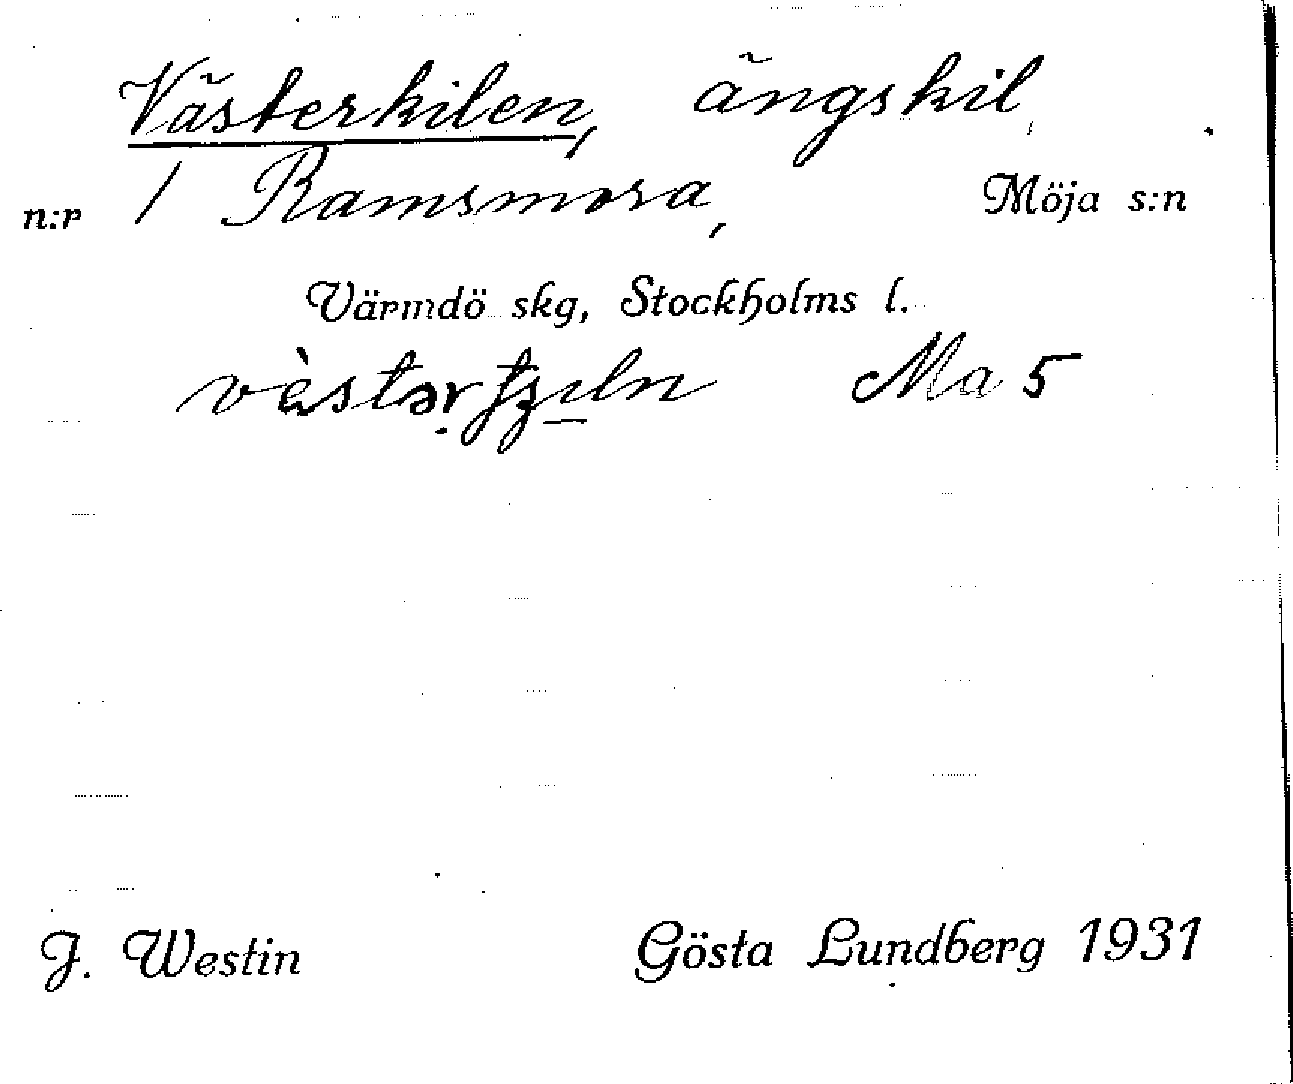 Västerkilen, ängskil,
n:r 1 Ramsmora, Möja s:n
Värmdö skg, Stockholms l.
Ma 5
J. Westin Gösta Lundberg 1931